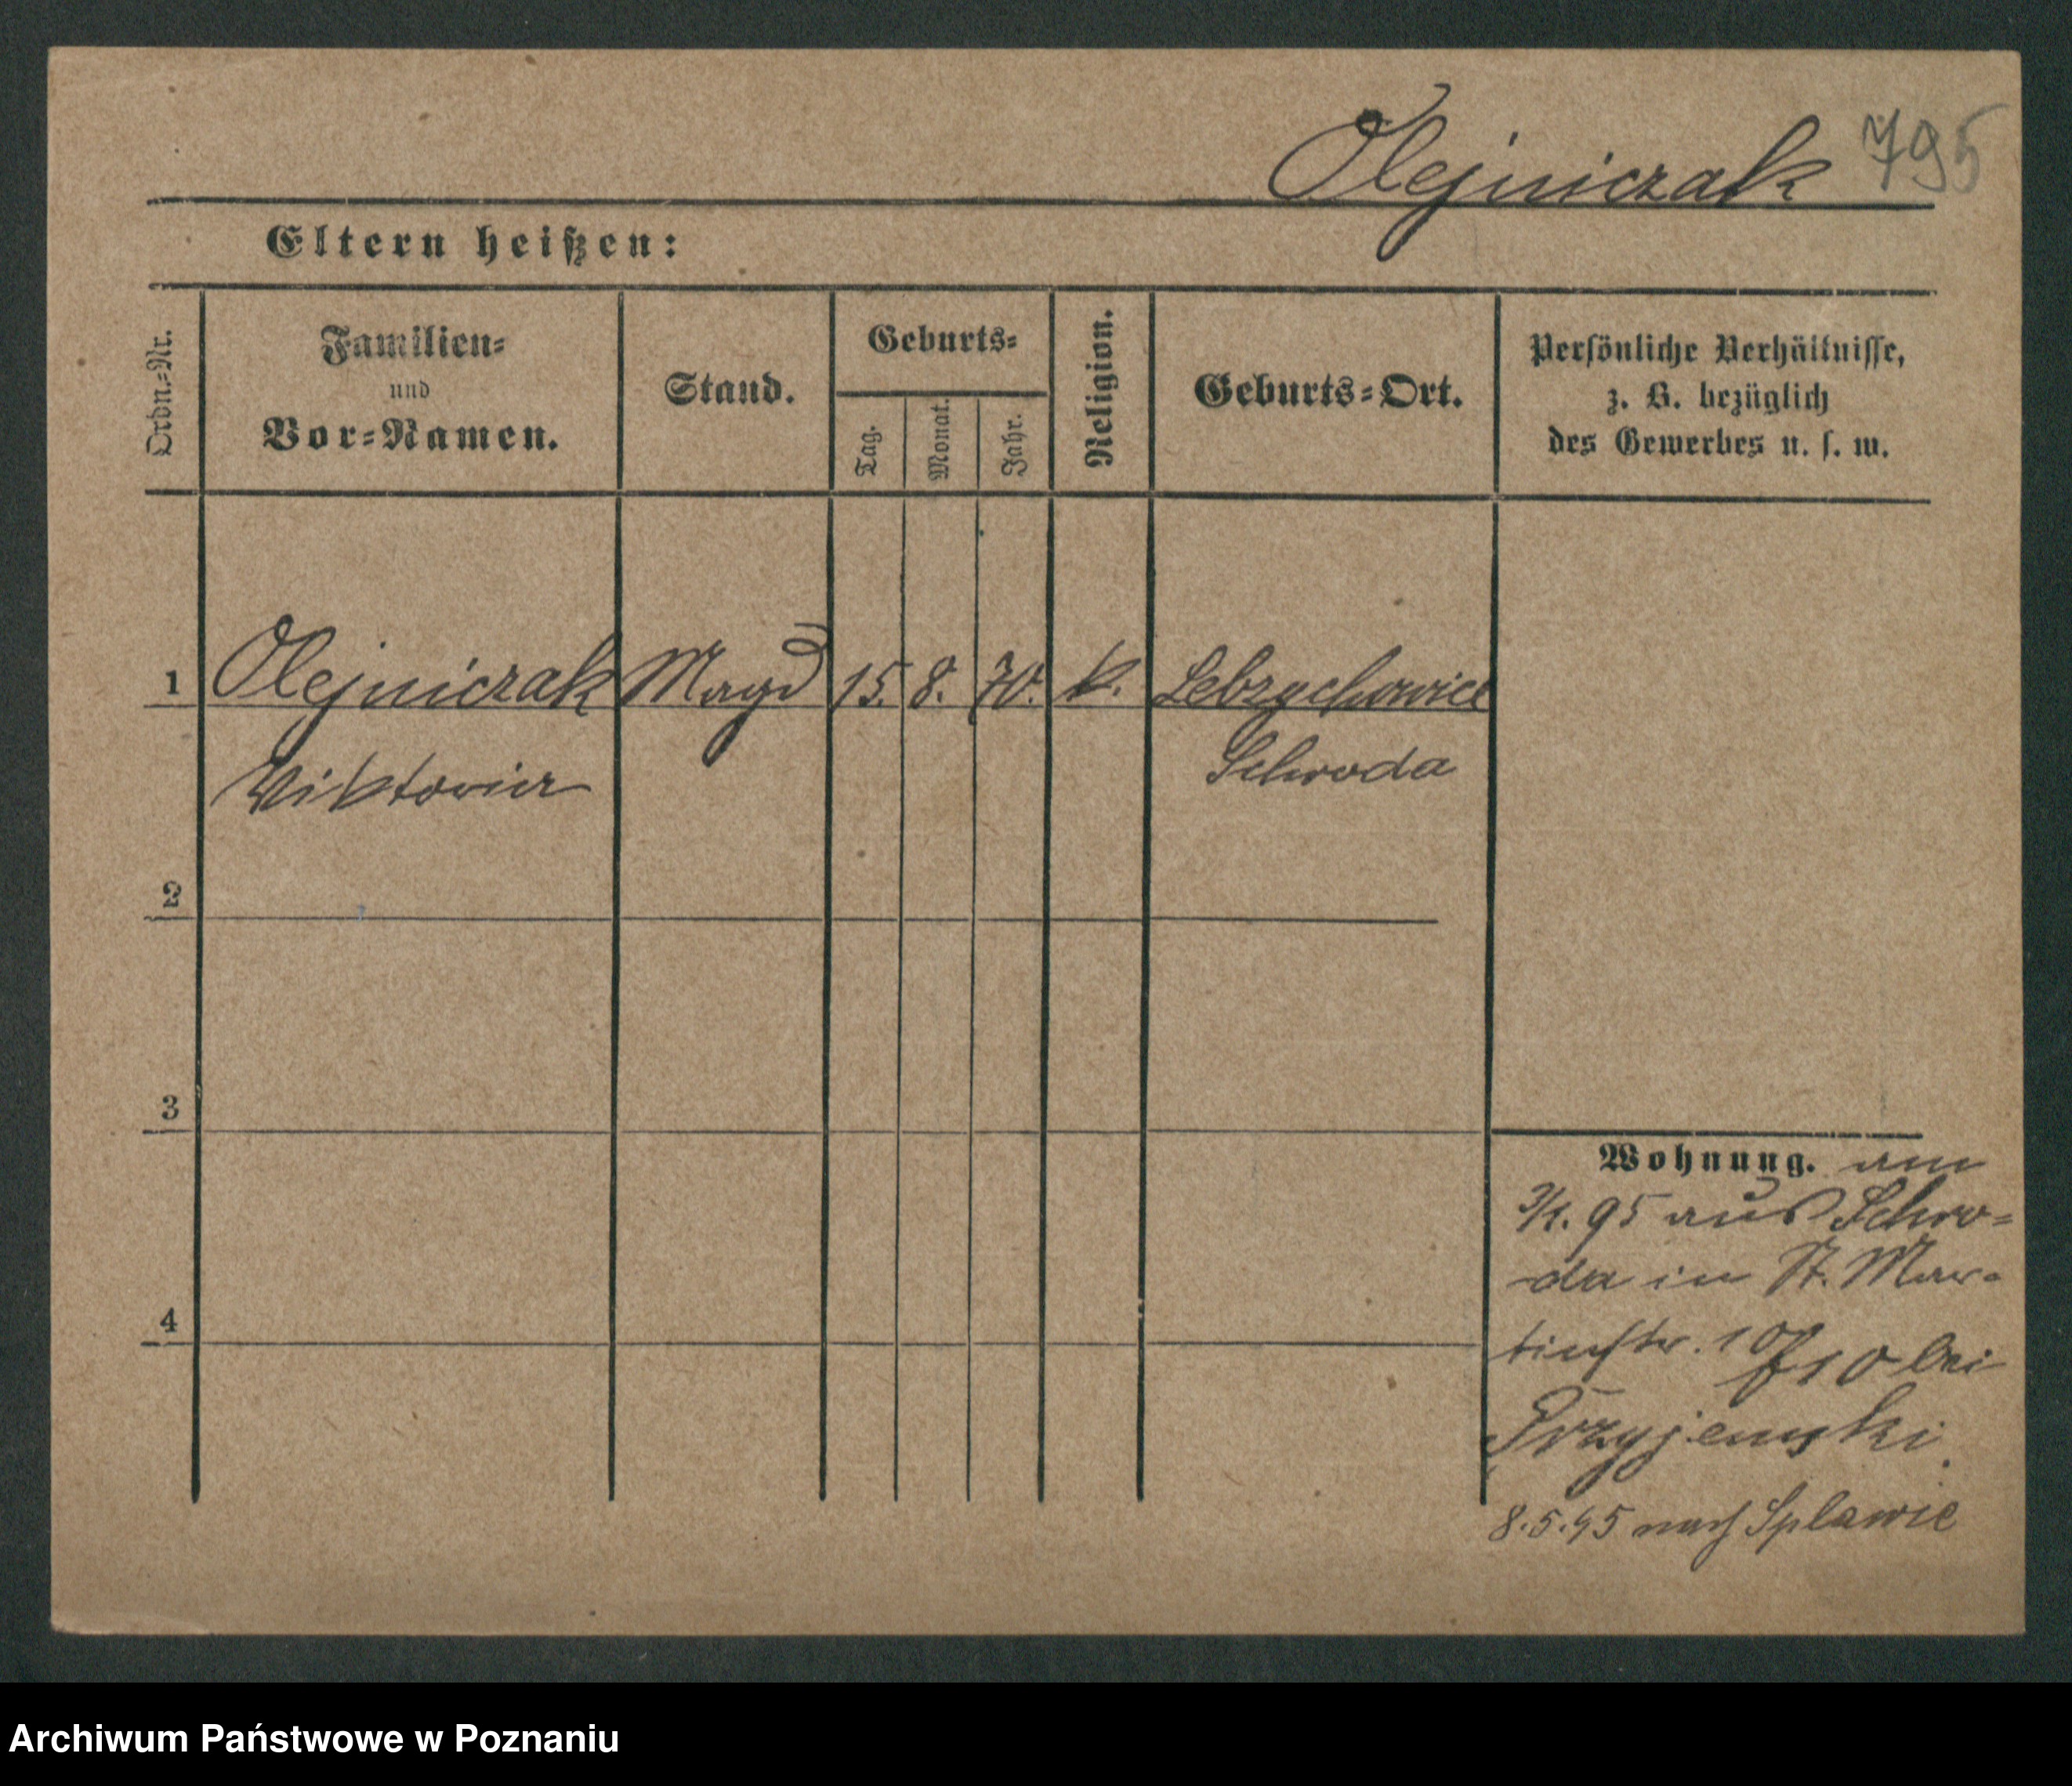 Olejniczak 795
Eltern heißen:
Ordn.-Nr.
Familien-
und
Vor-Namen.
Stand.
Geburts-
Tag.
Monat.
Jahr.
Religion.
Geburts-Ort.
Persönliche Verhältnisse,
z. B. bezüglich
des Gewerbes u. s. w.
1 Olejniczak Magd 15. 8. 70. k.
Viktoria Schroda
2
3
4
Wohnung. am
3/1. 95 aus Schro-
da in St. Mar-
tinstr. 10 bei
Przyjemski
8.5.95 nach Splawie
Archiwum Państwowe w Poznaniu